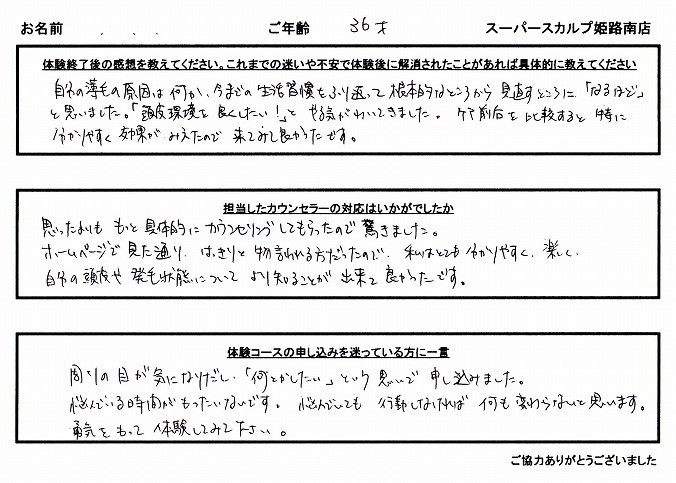 お名前 . . . ご年齢 36才 スーパースカルプ姫路南店
体験終了後の感想を教えてください。これまでの迷いや不安で体験後に解消されたことがあれば具体的に教えてください
自分の薄毛の原因は何か、今までの生活習慣をふり返って根本的なところから見直すところに「なるほど」
と思いました。「頭皮環境を良くしたい！」と やる気がわいてきました。ケア前後を比較すると特に
分かりやすく効果がみえたので来てみて良かったです。
担当したカウンセラーの対応はいかがでしたか
思ったよりも もっと具体的にカウンセリングしてもらったので驚きました。
ホームページで見た通り、はっきりと物言われる方だったので、私はとても分かりやすく、楽しく、
自分の頭皮や発毛状態について より知ることが出来て良かったです。
体験コースの申し込みを迷っている方に一言
周りの目が気になりだし、「何とかしたい」という思いで申し込みました。
悩んでいる時間がもったいないです。悩んでいても行動しなければ何も変わらないと思います。
勇気をもって体験してみて下さい。
ご協力ありがとうございました